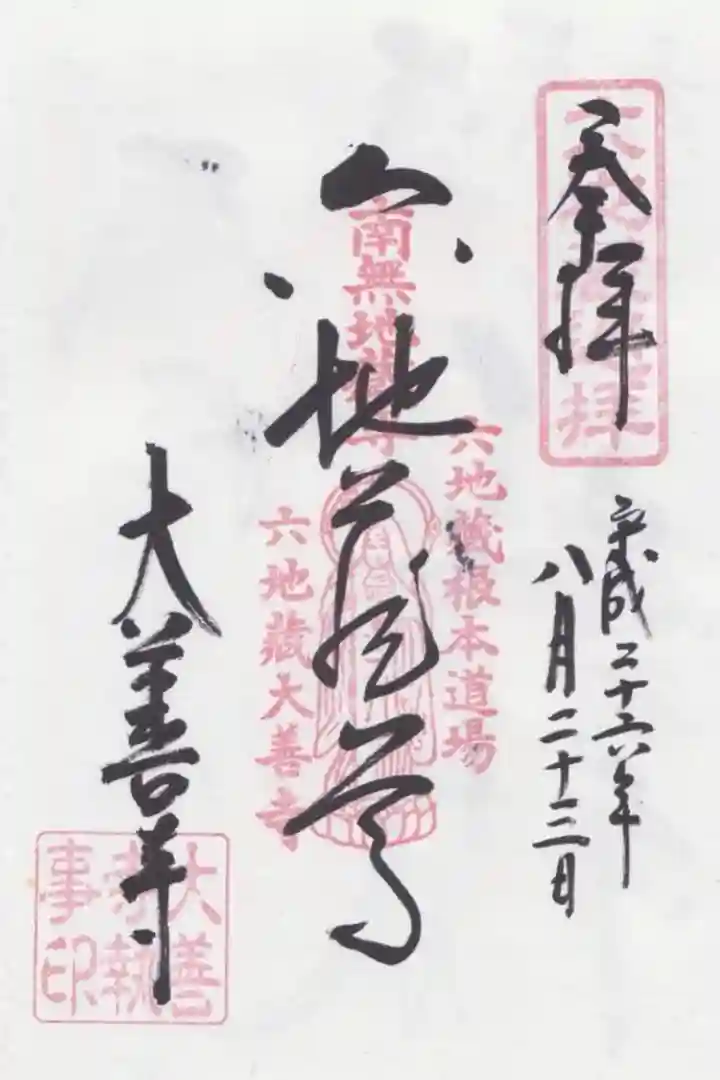 奉拝
平成二十六年
八月二十三日
六地蔵根本道場
南無地蔵尊
六地蔵尊
六地藏大善寺
大善寺
大善
寺執
事印